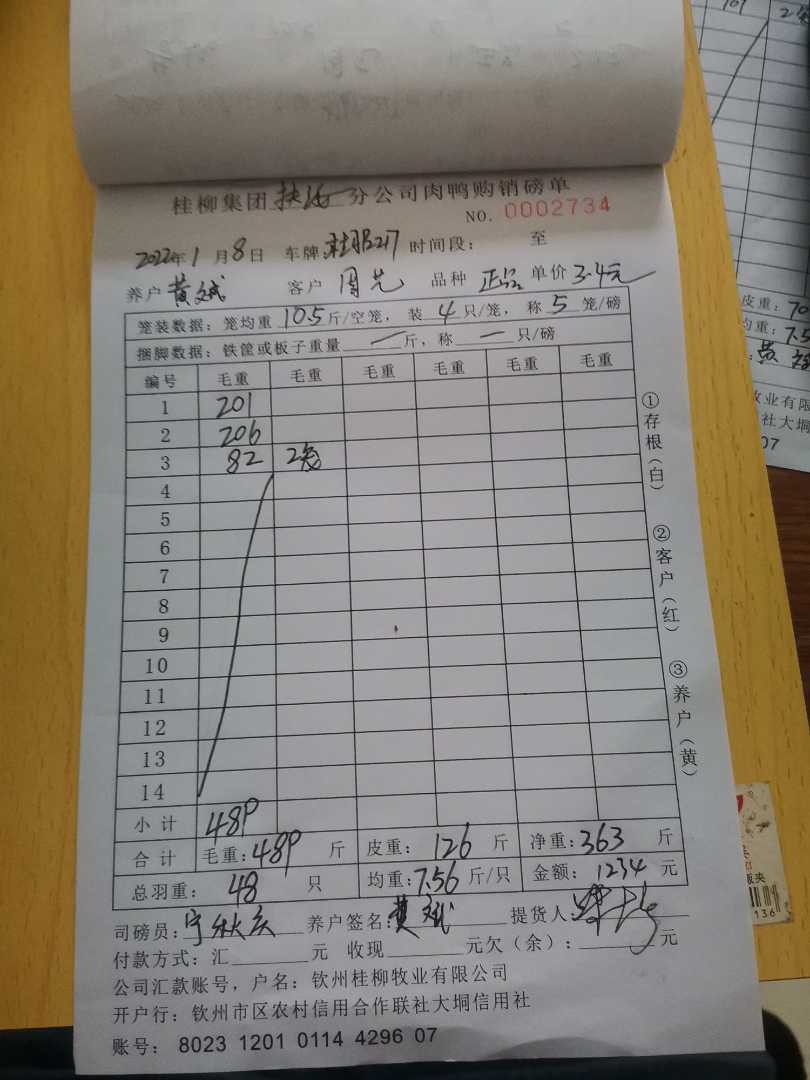 桂柳集团扶 分公司肉鸭购销磅单
NO. 0002734
2022年1月8日 车牌 217 时间段: 至
养户黄文斌 客户周艺 品种正品 单价3.4元
笼装数据: 笼均重10.5斤/空笼, 装4只/笼, 称5笼/磅
捆脚数据: 铁筐或板子重量—斤, 称—只/磅
编号 毛重 毛重 毛重 毛重 毛重 毛重
1 201
2 206
3 82 2笼
4
5
6
7
8
9
10
11
12
13
14
小计 489
合计 毛重:489斤 皮重: 126斤 净重:363斤
总羽重: 48只 均重:7.56斤/只 金额: 1234元
司磅员: 养户签名:黄文斌 提货人:
付款方式: 汇 元 收现 元欠(余): 元
公司汇款账号, 户名: 钦州桂柳牧业有限公司
开户行: 钦州市区农村信用合作联社大垌信用社
账号: 8023 1201 0114 4296 07
①存根(白)
②客户(红)
③养户(黄)
皮重: 70
均重: 7.5
牧业有限
社大垌
07
136